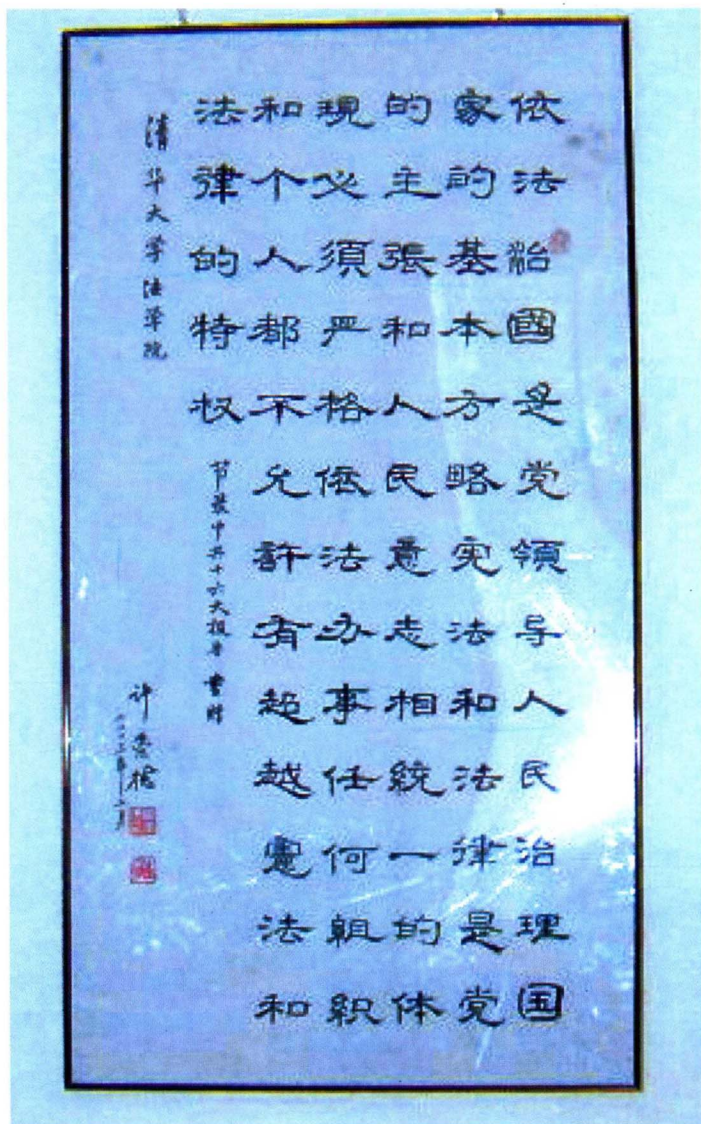 依法治國是党領导人民治理国
家的基本方略宪法和法律是党
的主張和人民意志相統一的体
現必須严格依法办事任何組織
和个人都不允許有超越憲法和
法律的特权
节录中共十六大报告 書赠
清华大学法学院
许